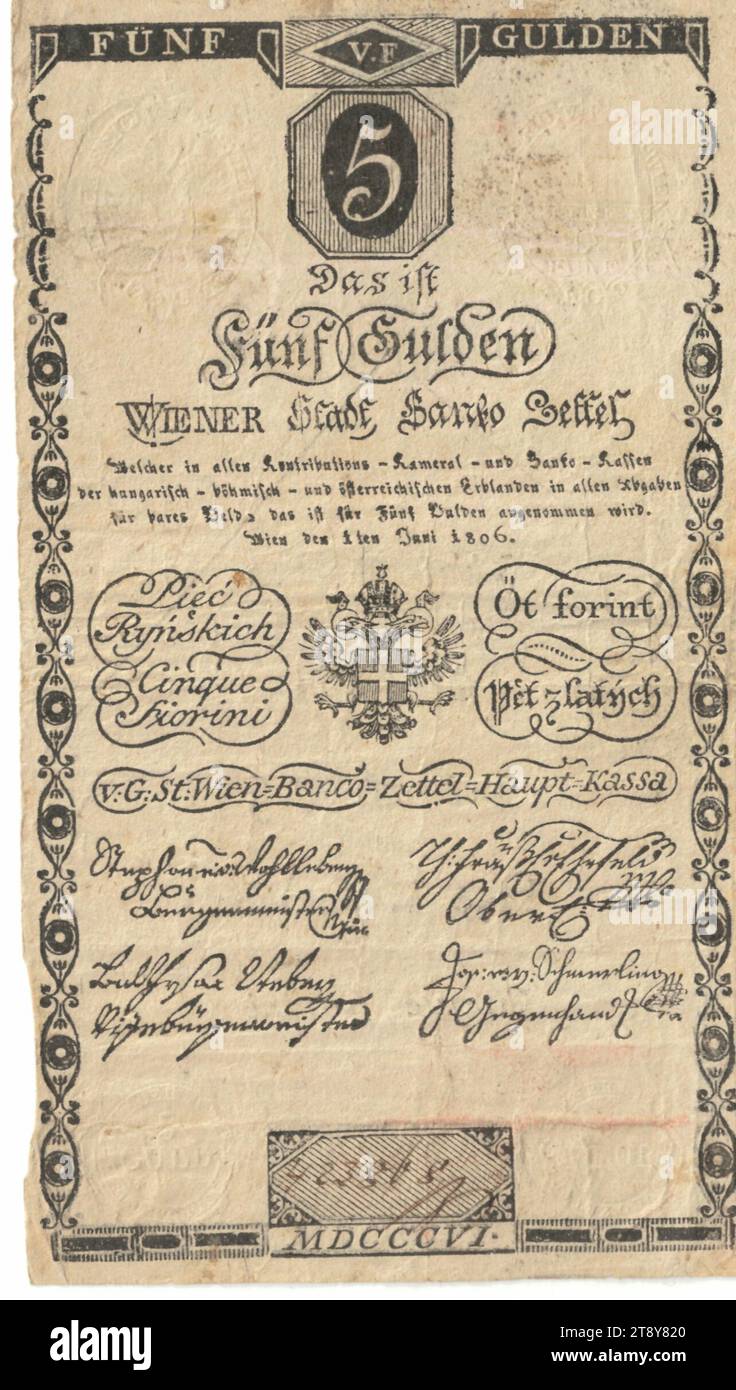 FÜNF V.F GULDEN
5
Das ist
Fünf Gulden
WIENER Stadt Banko Zettel
Welcher in allen Kontributions - Kameral - und Banko - Kassen
der hungarisch - böhmisch - und österreichischen Erblanden in allen Abgaben
für bares Geld, das ist für Fünf Gulden angenommen wird.
Wien den 1ten Juni 1806.
Pięć
Ryńskich
Cinque
Fiorini
Öt forint
Pět zlatých
v: G: St: Wien=Banco=Zettel=Haupt=Kassa
Stephan v: Wohlleben
Burgermeister
Ober
Jos: v: Schmerling
Gegenhand
MDCCCVI.
alamy
Image ID: 2T8Y820
www.alamy.com